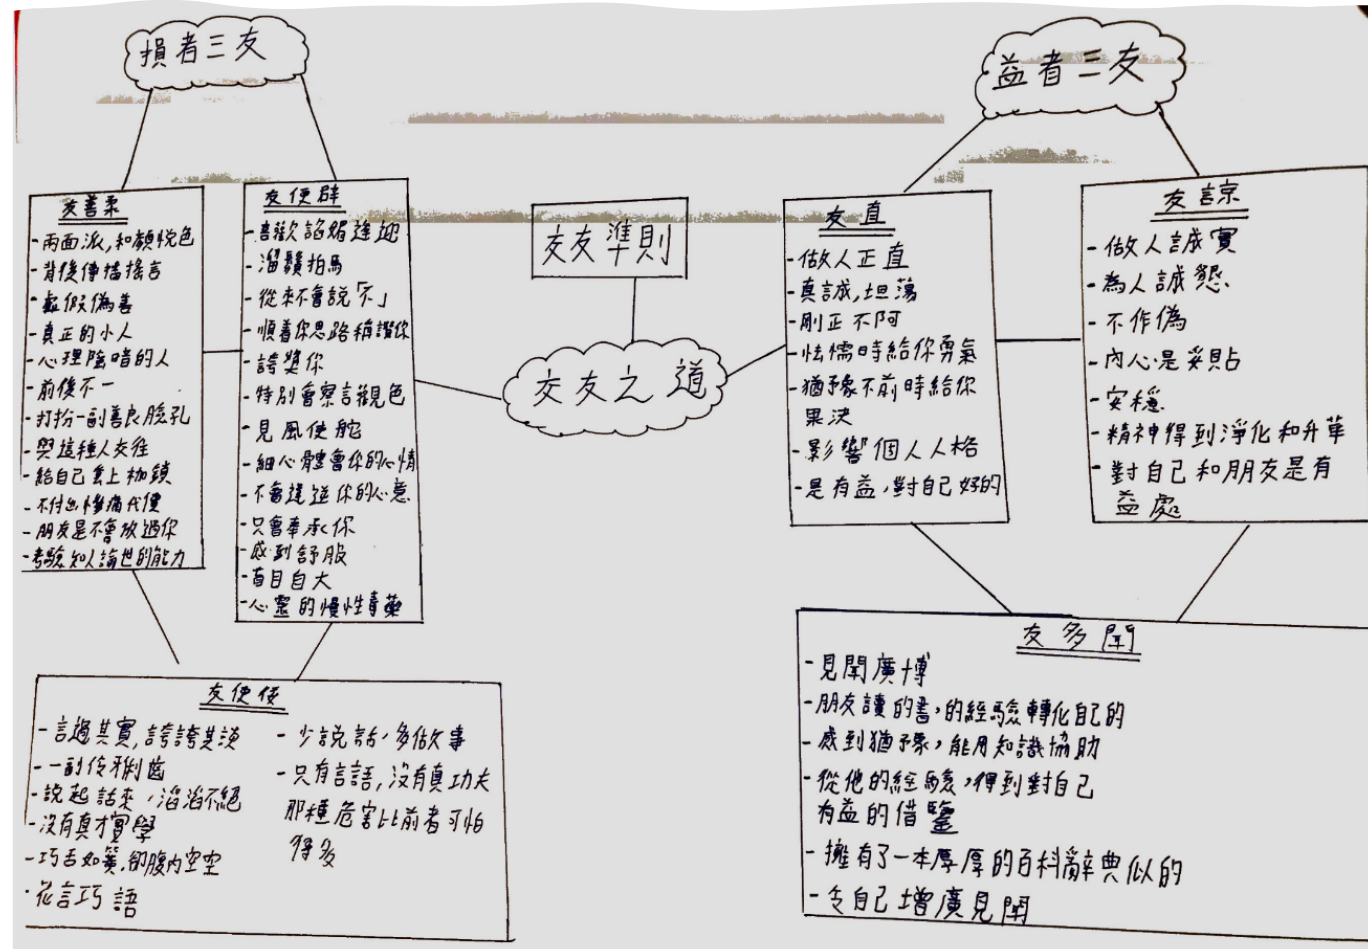 損者三友
友善柔
-兩面派,和顏悅色
-背後傳播搖言
-虛假偽善
-真正的小人
-心理陰暗的人
-前後不一
-打扮一副善良臉孔
-與這種人交往
-給自己套上枷鎖
-不付出慘痛代價
-朋友是不會放過你
-考驗知人論世的能力
友便辟
-喜歡諂媚逢迎
-溜鬚拍馬
-從來不會說「不」
-順著你思路稱讚你
-誇獎你
-特別會察言觀色
-見風使舵
-細心體會你的心情
-不會違逆你的心意
-只會奉承你
-感到舒服
-盲目自大
-心靈的慢性毒藥
友便佞
-言過其實,誇誇其談
-一副伶牙俐齒
-說起話來,滔滔不絕
-沒有真才實學
-巧舌如簧,卻腹內空空
·花言巧語
-少說話,多做事
-只有言語,沒有真功夫
那種危害比前者可怕
得多
交友準則
交友之道
益者三友
友直
-做人正直
-真誠,坦蕩
-剛正不阿
-怯懦時給你勇氣
-猶豫不前時給你
果決
-影響個人人格
-是有益,對自己好的
友諒
-做人誠實
-為人誠懇
-不作偽
-內心是妥貼
-安穩
-精神得到淨化和升華
-對自己和朋友是有
益處
友多聞
-見聞廣博
-朋友讀的書,的經驗轉化自己的
-感到猶豫,能用知識協助
-從他的經驗,得到對自己
有益的借鑒
-擁有了一本厚厚的百科辭典似的
-令自己增廣見聞